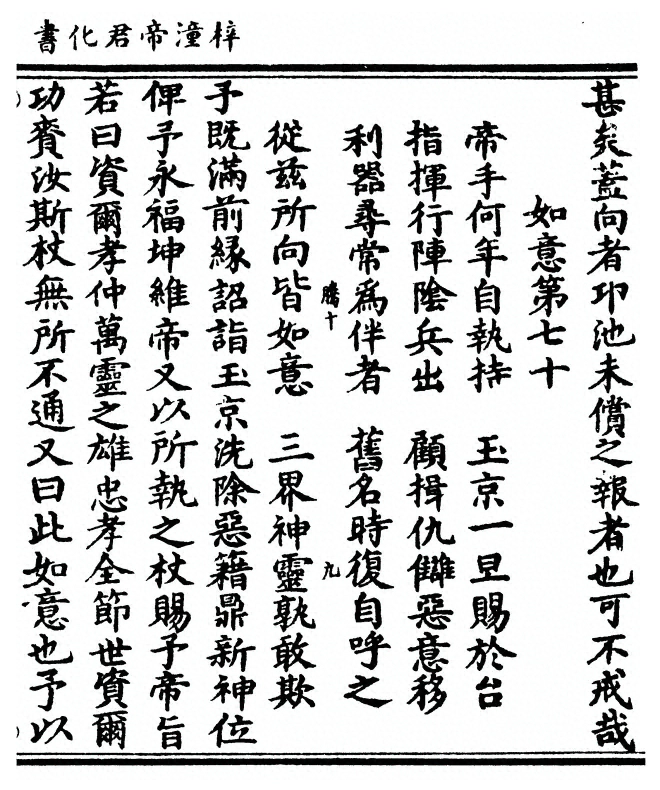 梓潼帝君化書
甚矣蓋向者邛池未償之報者也可不戒哉
如意第七十
帝手何年自執持　玉京一旦賜於台
指揮行陣陰兵出　顧揖仇讎惡意移
利器尋常爲伴者　舊名時復自呼之
騰十　九
從兹所向皆如意　三界神靈孰敢欺
予既滿前緣詔詣玉京洗除惡籍鼎新神位
俾予永福坤維帝又以所執之杖賜予帝旨
若曰資爾孝仲萬靈之雄忠孝全節世資爾
功賚汝斯杖無所不通又曰此如意也予以